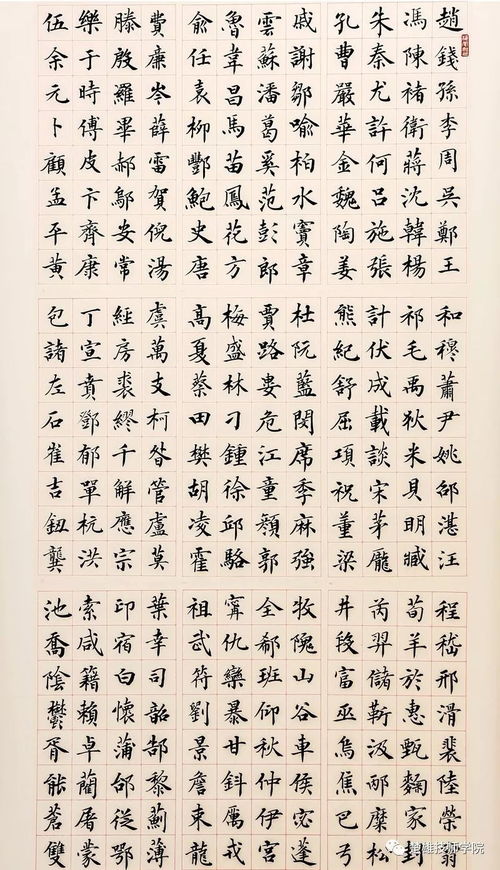 趙錢孫李周吳鄭王
馮陳褚衛蔣沈韓楊
朱秦尤許何呂施張
孔曹嚴華金魏陶姜
戚謝鄒喻柏水竇章
雲蘇潘葛奚范彭郎
魯韋昌馬苗鳳花方
俞任袁柳酆鮑史唐
費廉岑薛雷賀倪湯
滕殷羅畢郝鄔安常
樂于時傅皮卞齊康
伍余元卜顧孟平黃
和穆蕭尹姚邵湛汪
祁毛禹狄米貝明臧
計伏成戴談宋茅龐
熊紀舒屈項祝董梁
杜阮藍閔席季麻強
賈路婁危江童顏郭
梅盛林刁鍾徐邱駱
高夏蔡田樊胡凌霍
虞萬支柯昝管盧莫
經房裘繆干解應宗
丁宣賁鄧郁單杭洪
包諸左石崔吉鈕龔
程嵇邢滑裴陸榮翁
荀羊於惠甄麴家封
芮羿儲靳汲邴糜松
井段富巫烏焦巴弓
牧隗山谷車侯宓蓬
全郗班仰秋仲伊宮
甯仇欒暴甘鈄厲戎
祖武符劉景詹束龍
葉幸司韶郜黎薊薄
印宿白懷蒲邰從鄂
索咸籍賴卓藺屠蒙
池喬陰鬱胥能蒼雙
楚雄技师学院